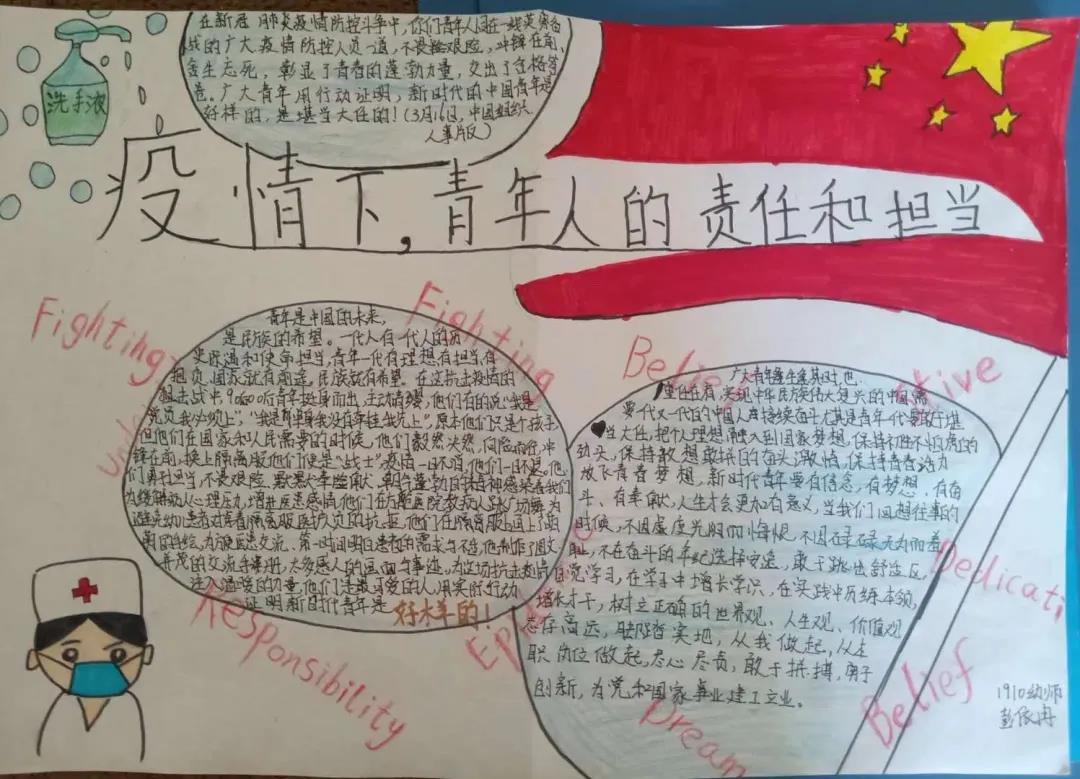 洗手液
在新冠肺炎疫情防控斗争中,你们青年人同在一线英勇奋
战的广大疫情防控人员一道,不畏艰险,冲锋在前、
舍生忘死,彰显了青春的蓬勃力量,交出了合格答
卷。广大青年用行动证明,新时代的中国青年是
好样的,是堪当大任的!(3月16日,中国组织
人事版)
疫情下,青年人的责任和担当
Fighting
Fighting
青年是中国的未来,
是民族的希望。一代人有一代人的历
史际遇和使命担当,青年一代有理想有担当,有
担负,国家就有前途,民族就有希望。在这抗击疫情的
阻击战中,90后00后青年挺身而出,主动请缨,他们有的说"我是
党员我必须上","我是单身我没有牵挂我先上"。原本他们只是个孩子
但他们在国家和人民需要的时候,他们毅然决然,向险而行,冲
锋在前,换上隔离服他们便是"战士"疫情一日不消,他们一日不退,他
们勇于担当,不畏艰险、默默奉献,朝气蓬勃的精神感染着我们
为缓解病人心理压力,增进医患感情,他们在方舱医院教病人跳广场舞为
避免幼小患者对穿着隔离服医护人员的抗拒,他们在隔离服上画上了
的手绘,为方便医患交流、第一时间明白患者的需求与不适,他制作了图文
并茂的交流手册,太多感人的画面与事迹,为这场抗击疫情
注入温暖的力量,他们是最可爱的人,用实际行动
证明新时代青年是好样的!
Responsibility
Belie
ctive
广大青年生逢其时,也
重任在肩,实现中华民族伟大复兴的中国需
要一代又一代的中国人民接续奋斗尤其是青年一代要敢于堪
当大任,把个人理想融入到国家梦想,保持初生牛犊不怕虎的
劲头,保持敢想敢拼的奋头激情,保持青春活力
放飞青春梦想,新时代青年要有信念,有梦想、有奋
斗、有奉献,人生才会更加有意义,当我们回想往事的
时候,不因虚度光阴而悔恨,不因碌碌无为而羞
耻,不在奋斗的年纪选择安逸,敢于跳出舒适区,
自觉学习,在学习中增长学识,在实践中历练本领,
增长才干,树立正确的世界观、人生观、价值观
志存高远,脚踏实地,从我做起,从本
职岗位做起,尽心尽责,敢于拼搏,勇于
创新,为党和国家事业建工立业。
Dedicati
Dream
Belief
1910幼师